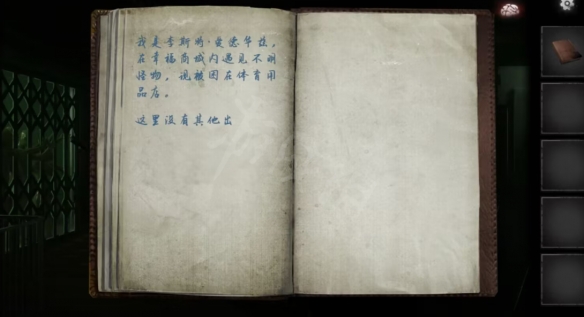 我是李斯特·爱德华兹，
在幸福商城内遇见不明
怪物，现被困在体育用
品店。
这里没有其他出